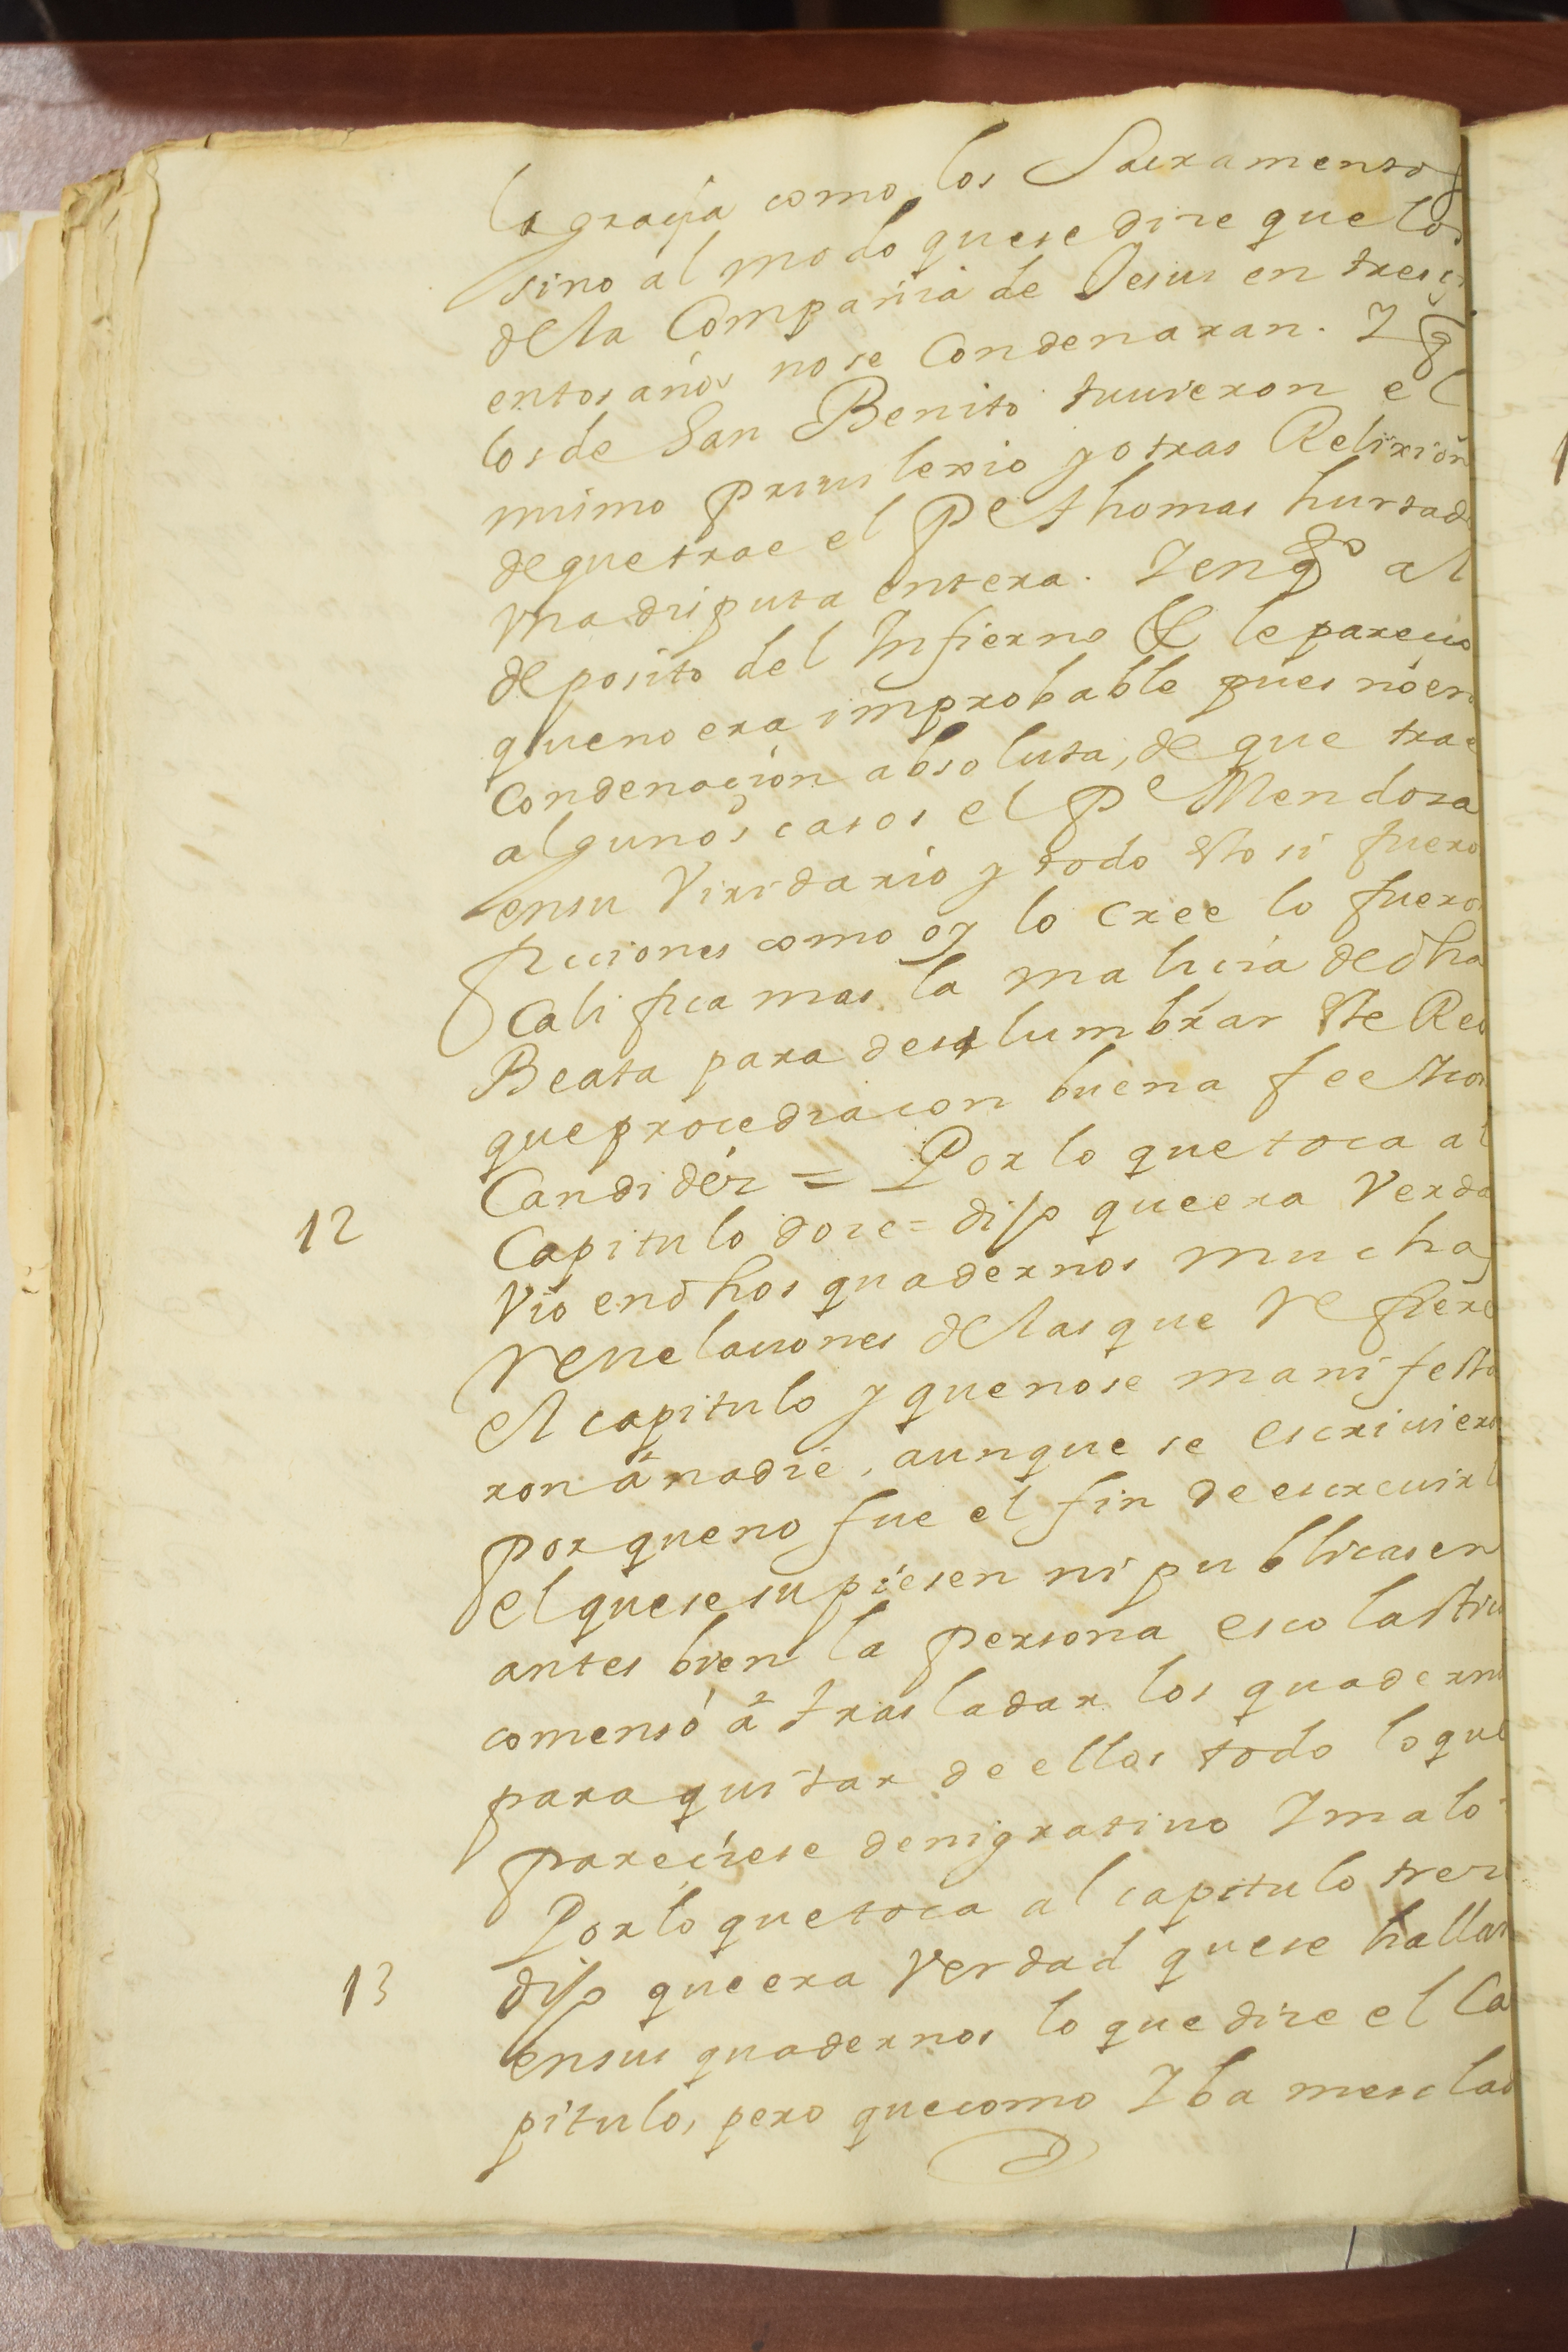 la graçia como los Sacramentos
sino al modo que se dize que los
de la Compañia de Jesus en tresçi
entos años no se Condenaran. Y q
los de San Benito tuuieron el
mismo priuilexio y otras Relixion
de que trae el Pe thomas hurtad
vna disputa entera. Y en qto al
deposito del Infierno & le pareçio
que no era improbable pues no en
Condenaçion absoluta, de que trae
algunos casos el Pe Mendoza
en su Viridario y todo esto si fuero
ficciones como oy lo cree lo fuero
Califica mas la maliçia de dha
Beata para deslumbrar este Reo
que procedia con buena fee y con
Candidéz = Por lo que toca al
12 Capitulo doze = dijo que era Verda
Vio en dhos quadernos muchas
reuelaciones de las que refiere
el capitulo y que no se manifesta
ron à nadie, aunque se escriuiero
porque no fue el fin de escreuirl
el que se supiesen ni publicasen
antes bien la persona escolastic
comensó à trasladar los quaderno
para quitar de ellos todo lo que
pareçiese denigratiuo Y malo
Por lo que toca al capitulo trez
13 dijo que era Verdad que se hallar
en sus quadernos lo que dize el Ca
pitulo, pero que como Yba mesclad